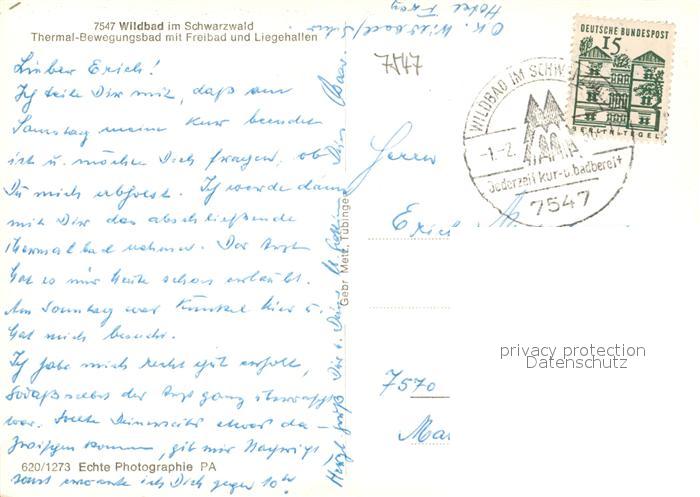 7547 Wildbad im Schwarzwald
Thermal-Bewegungsbad mit Freibad und Liegehallen
Lieber Erich!
Ich teile Dir mit, daß am
Samstag meine Kur beendet
ist u. möchte Dich fragen, ob
Du mich abholst. Ich werde dann
mit Dir das abschließende
Thermalbad nehmen. Der Arzt
hat es mir heute schon erlaubt.
Am Sonntag war Künkel hier u.
hat mich besucht.
Ich habe mich recht gut erholt,
sodaß selbst der Arzt ganz überrascht
war. Sollte Deinerseits etwas da-
zwischen kommen, gib mir Nachricht
sonst erwarte ich Dich gegen 10 Uhr
620/1273 Echte Photographie PA
Herzl. Grüße Dir u. Deine
Gebr Metz, Tübingen
Hotel
7547
WILDBAD IM SCHW
-1.-2.
Jederzeit kur- u. badbereit
7547
DEUTSCHE BUNDESPOST
15
BERLIN TEGEL
Herrn
Eric
7570
Ma
privacy protection
Datenschutz